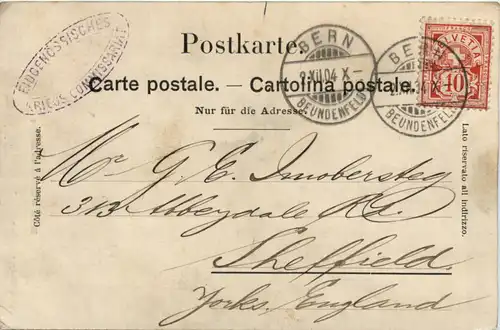 EIDGENÖSSISCHES
KRIEGS-COMMISSARIAT
Postkarte.
Carte postale. — Cartolina postale.
Nur für die Adresse.
BERN
2.XII.04 X–
BEUNDENFELD
BERN
BEUNDENFELD
HELVETIA
10
Côté réservé à l'adresse.
Lato riservato all'indirizzo.
Mr G. E. Imobersteg
313 Abbeydale Rd.
Sheffield
Yorks. England